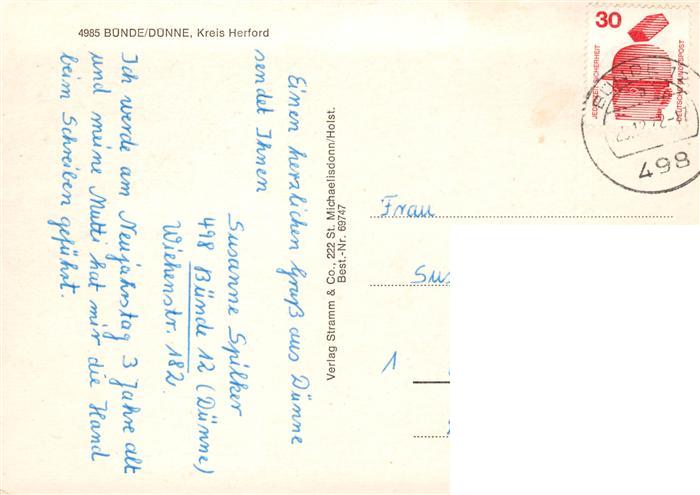 4985 BÜNDE/DÜNNE, Kreis Herford
Einen herzlichen Gruß aus Dünne
sendet Ihnen
Susanne Spilker
498 Bünde 12 (Dünne)
Wiehenstr. 182
Ich werde am Neujahrstag 3 Jahre alt
und meine Mutti hat mir die Hand
beim Schreiben geführt.
Verlag Stramm & Co., 222 St. Michaelisdonn/Holst.
Best.-Nr. 69747
30
JEDERZEIT SICHERHEIT
DEUTSCHE BUNDESPOST
498
Frau
1